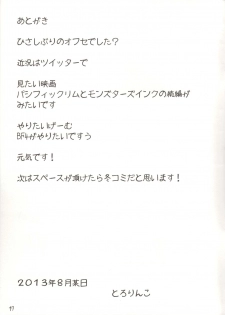 あとがき
ひさしぶりのオフセでした?
近況はツイッターで
見たい映画
パシフィックリムとモンスターズインクの続編が
みたいです
やりたいげーむ
BF4がやりたいですぅ
元気です!
次はスペースが頂けたら冬コミだと思います!
2013年8月某日
とろりんこ
17